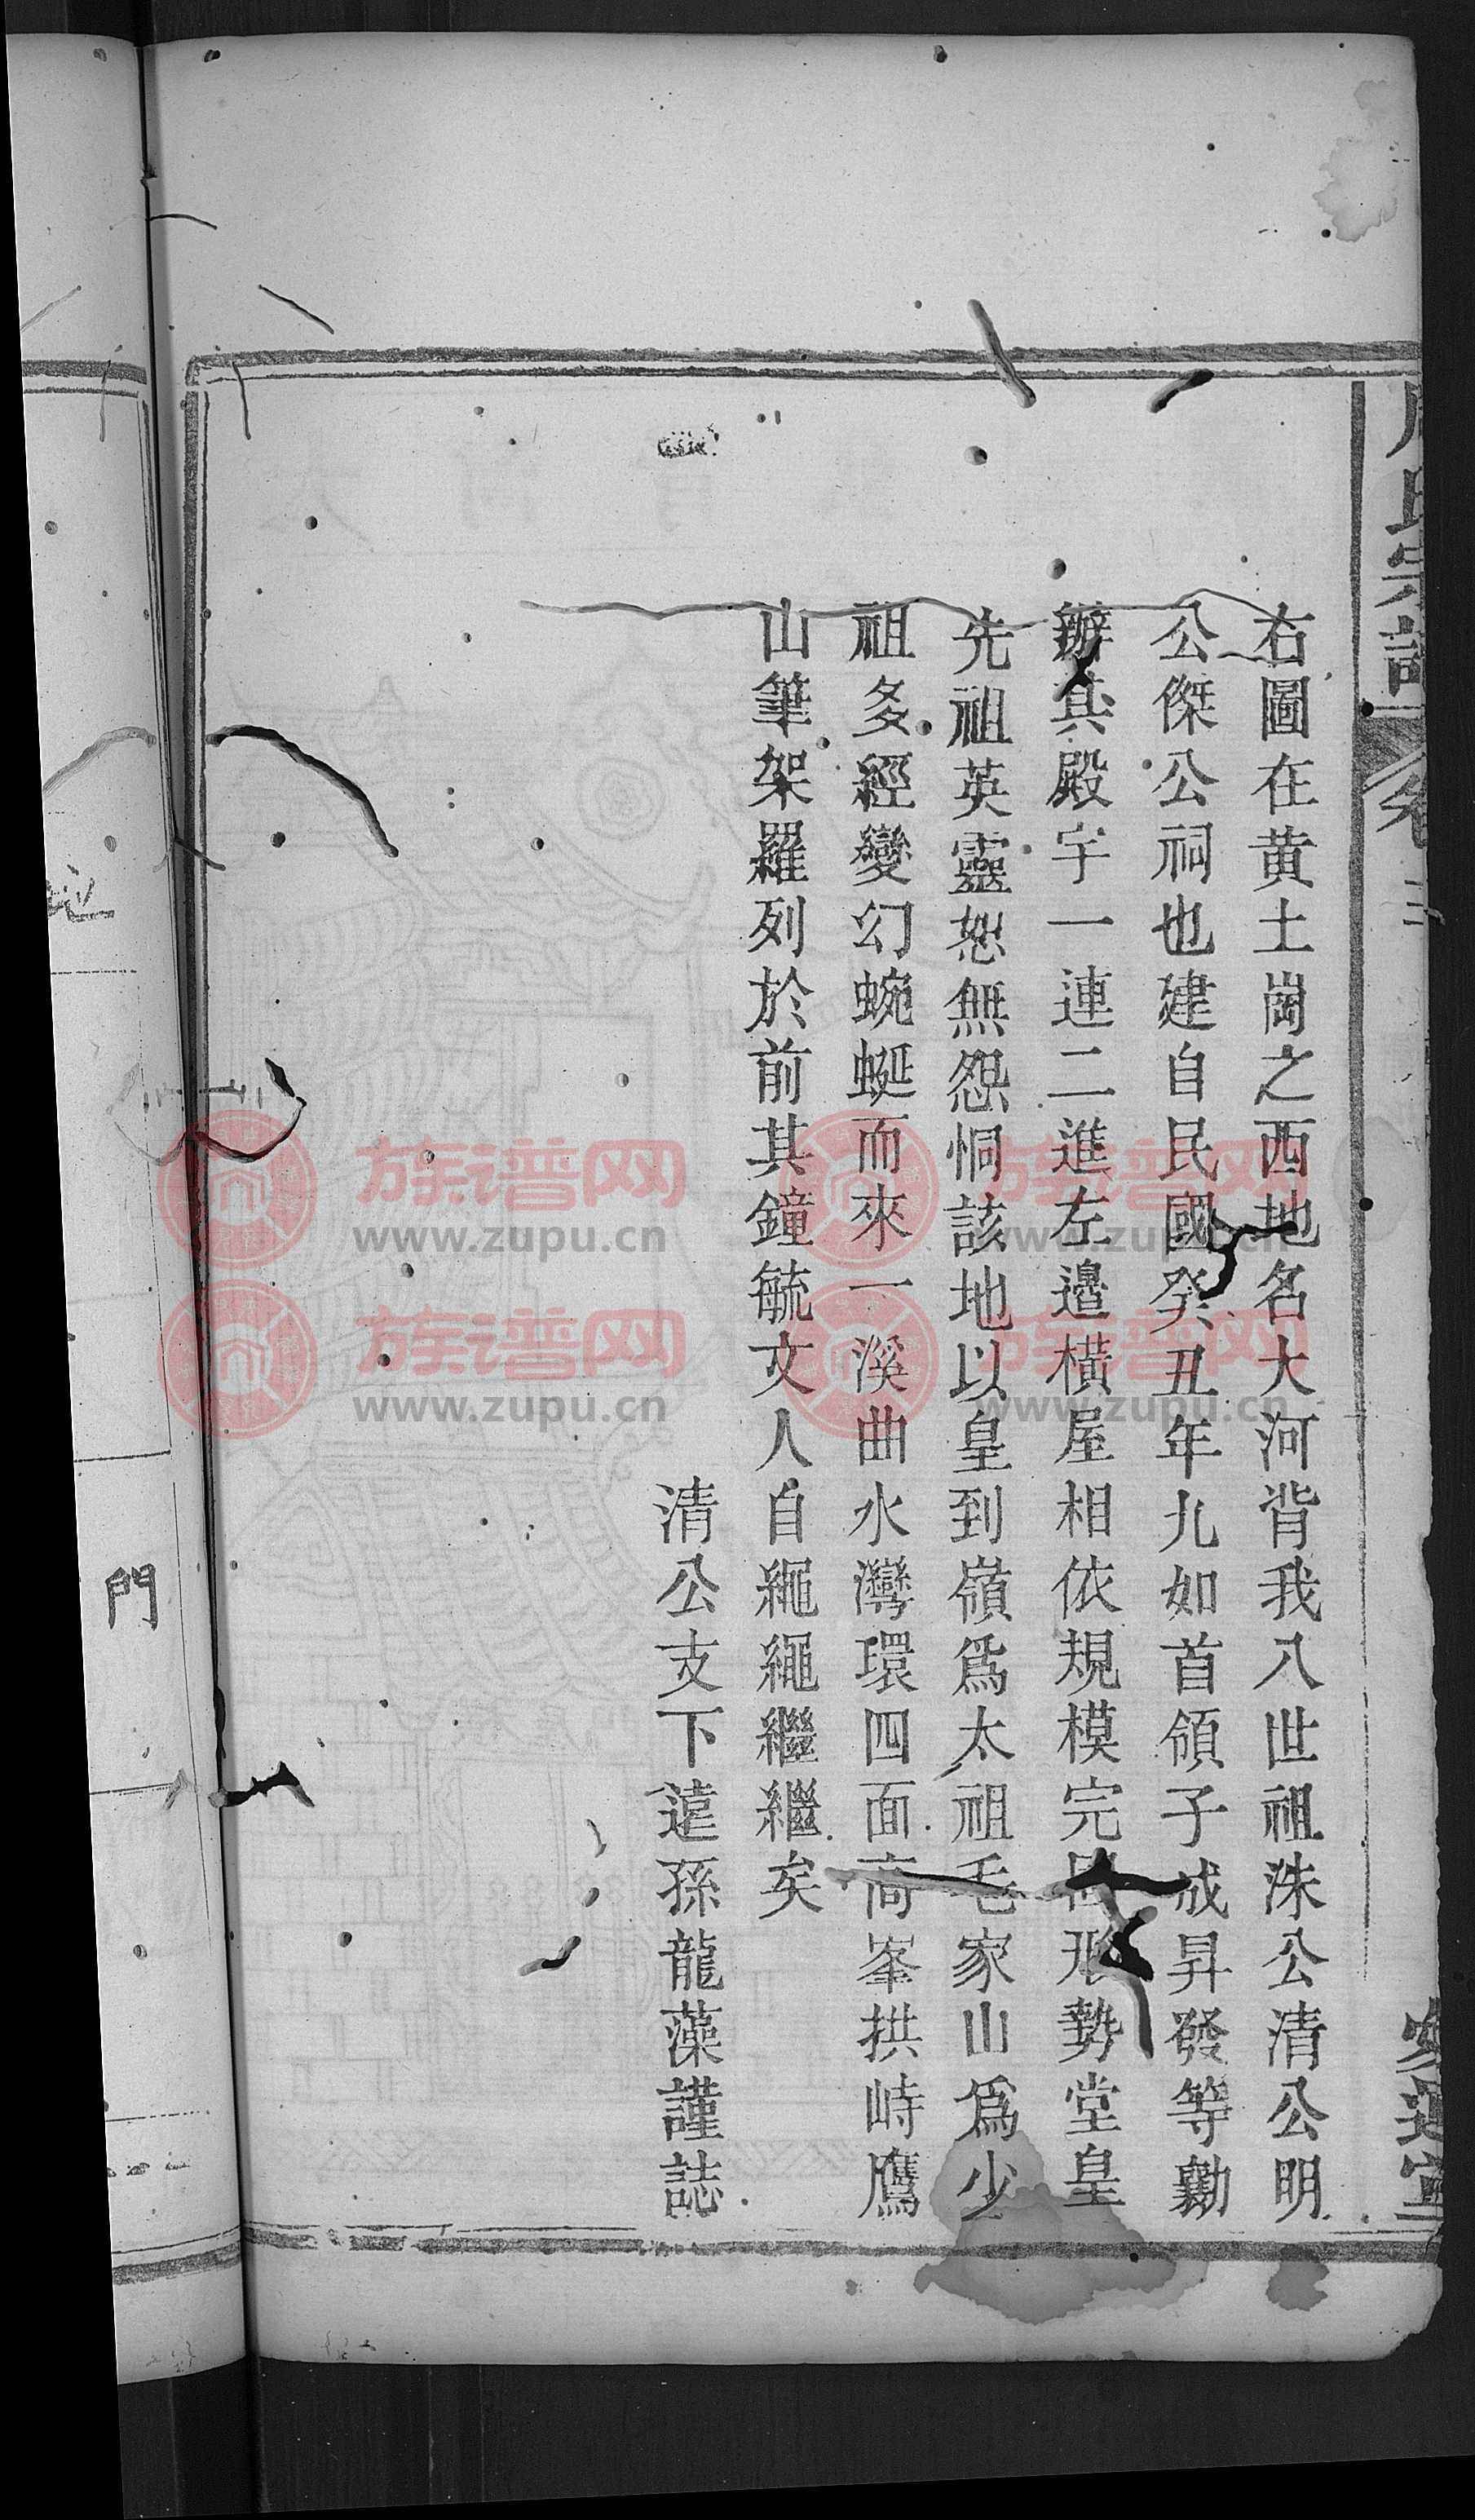 右圖在黃土崗之西地名大河背我八世祖洙公清公明
公傑公祠也建自民國癸丑年九如首領子成昇發等勷
辦其殿宇一連二進左邉橫屋相依規模完固形勢堂皇
先祖英靈恕無怨恫該地以皇到嶺爲太祖毛家山爲少
祖多經變幻蜿蜒而來一溪曲水灣環四面高峯拱峙鷹
山筆架羅列於前其鐘毓文人自繩繩繼繼矣
清公支下遠孫龍藻謹誌
門
族谱网
www.zupu.cn
族谱网
www.zupu.cn
族谱网
www.zupu.cn
族谱网
www.zupu.cn